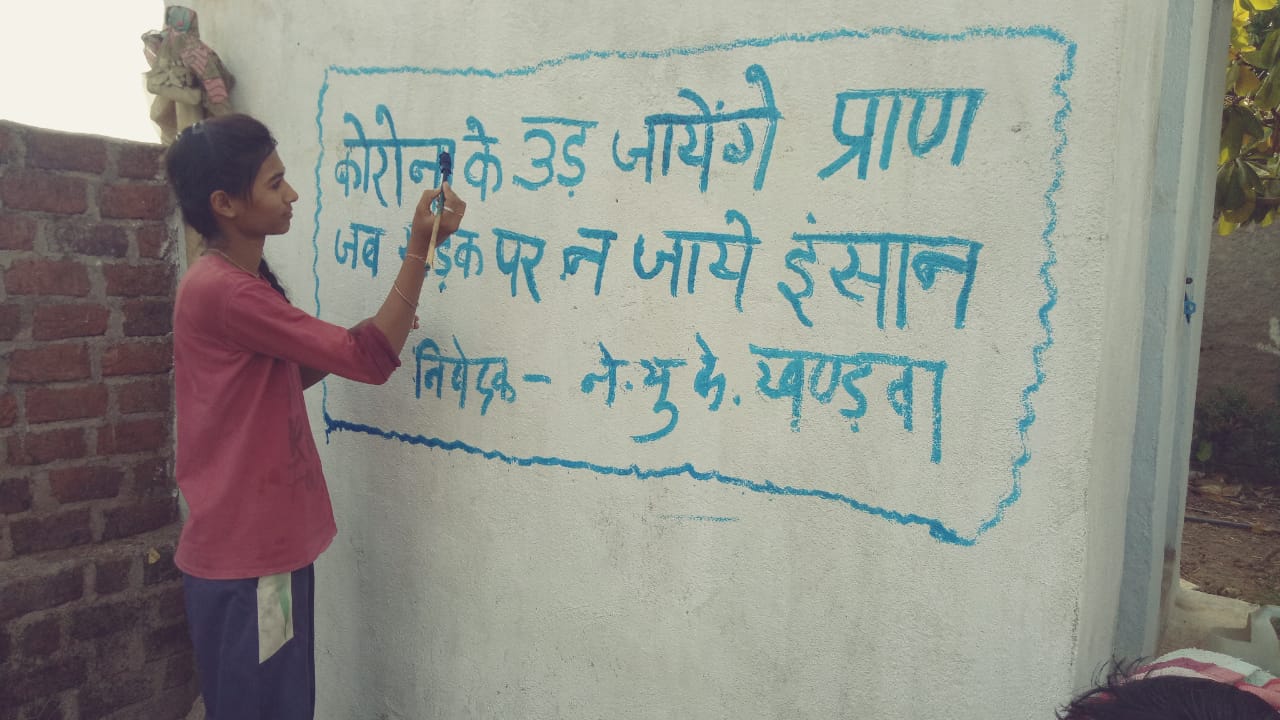 कोरोना के उड़ जायेंगे प्राण
जब सड़क पर न जाये इंसान
निवेदक - ने.यु के. खण्डवा